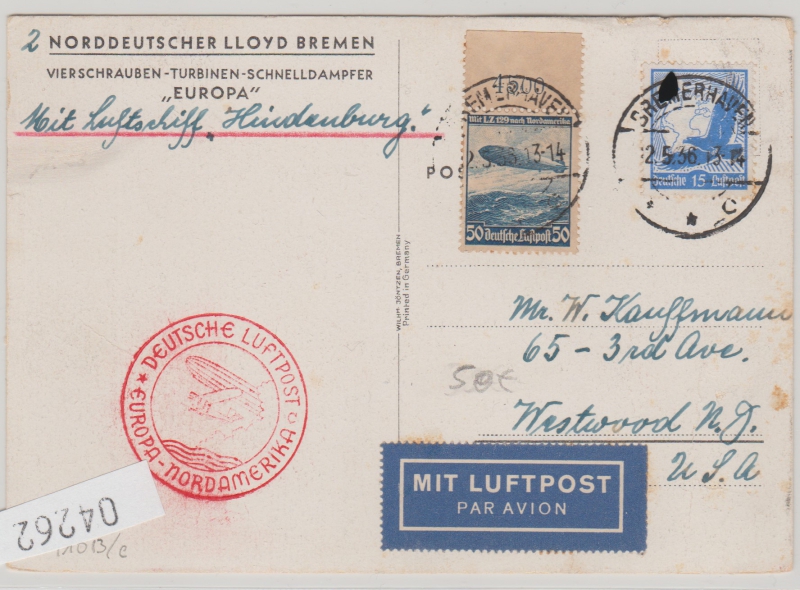 2 NORDDEUTSCHER LLOYD BREMEN
VIERSCHRAUBEN-TURBINEN-SCHNELLDAMPFER
„EUROPA"
Mit Luftschiff „Hindenburg."
4500
BREMERHAVEN
2.5.36 13-14
Mit L.Z. 129 nach Nordamerika
50 Deutsche Luftpost 50
BREMERHAVEN
2.5.36 13-14
C
Deutsche 15 Luftpost
PO
WILHM JÖNTZEN, BREMEN
Printed in Germany
Mr. W. Kauffmann
65 - 3rd Ave.
Westwood N.J.
USA
50€
DEUTSCHE LUFTPOST
* EUROPA-NORDAMERIKA
MIT LUFTPOST
PAR AVION
04262